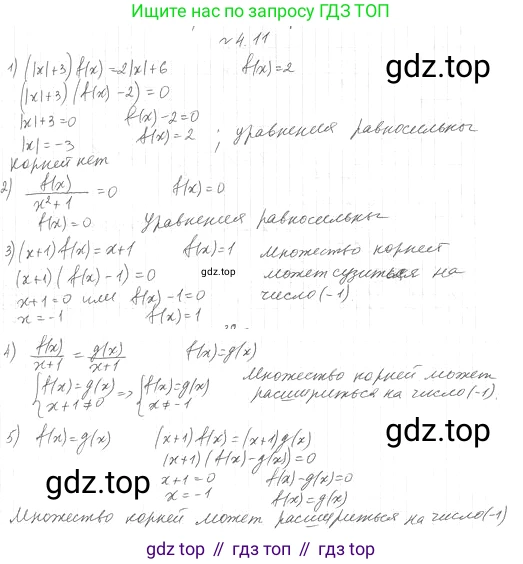 Ищите нас по запросу ГДЗ ТОП
№ 4.11
1) (|x|+3) f(x) = 2|x|+6 f(x)=2
(|x|+3) (f(x)-2) = 0
|x|+3=0 f(x)-2=0
|x|=-3 f(x)=2 ; уравнения равносильны
корней нет
2) f(x)/(x²+1) = 0 f(x)=0
f(x)=0 Уравнения равносильны
3) (x+1) f(x) = x+1 f(x)=1 Множество корней
(x+1) (f(x)-1) = 0 может сузиться на
x+1=0 или f(x)-1=0 число (-1).
x=-1 f(x)=1
4) f(x)/(x+1) = g(x)/(x+1) f(x)=g(x)
{f(x)=g(x) => {f(x)=g(x) Множество корней может
{x+1≠0 {x≠-1 расшириться на число (-1).
5) f(x)=g(x) (x+1) f(x) = (x+1) g(x)
(x+1) (f(x)-g(x)) = 0
x+1=0 f(x)-g(x)=0
x=-1 f(x)=g(x)
Множество корней может расшириться на число (-1)
gdz.top
gdz.top
gdz.top
gdz.top
gdz.top // гдз.топ // гдз топ